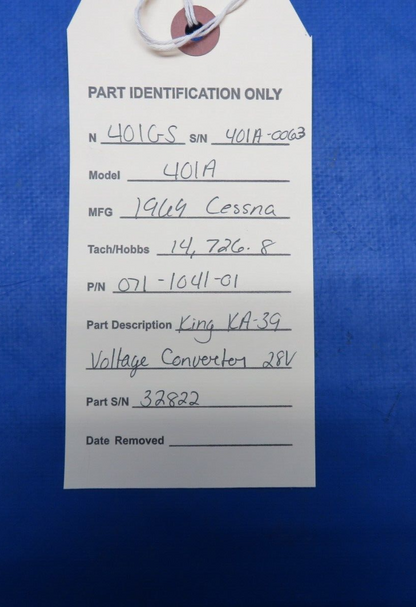 PART IDENTIFICATION ONLY
N 401GS S/N 401A-0063
Model 401A
MFG 1969 Cessna
Tach/Hobbs 14,726.8
P/N 071-1041-01
Part Description King KA-39
Voltage Converter 28V
Part S/N 32822
Date Removed